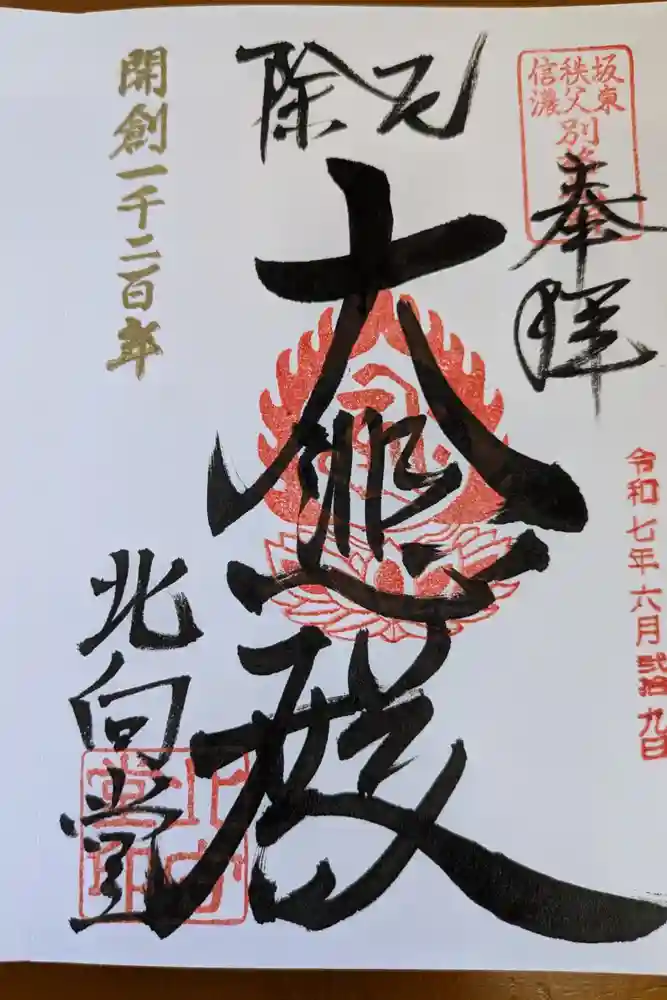 坂東
秩父
信濃
別
奉拝
令和七年六月弐拾九日
厄除
大悲殿
北向堂
北向堂印
開創一千二百年